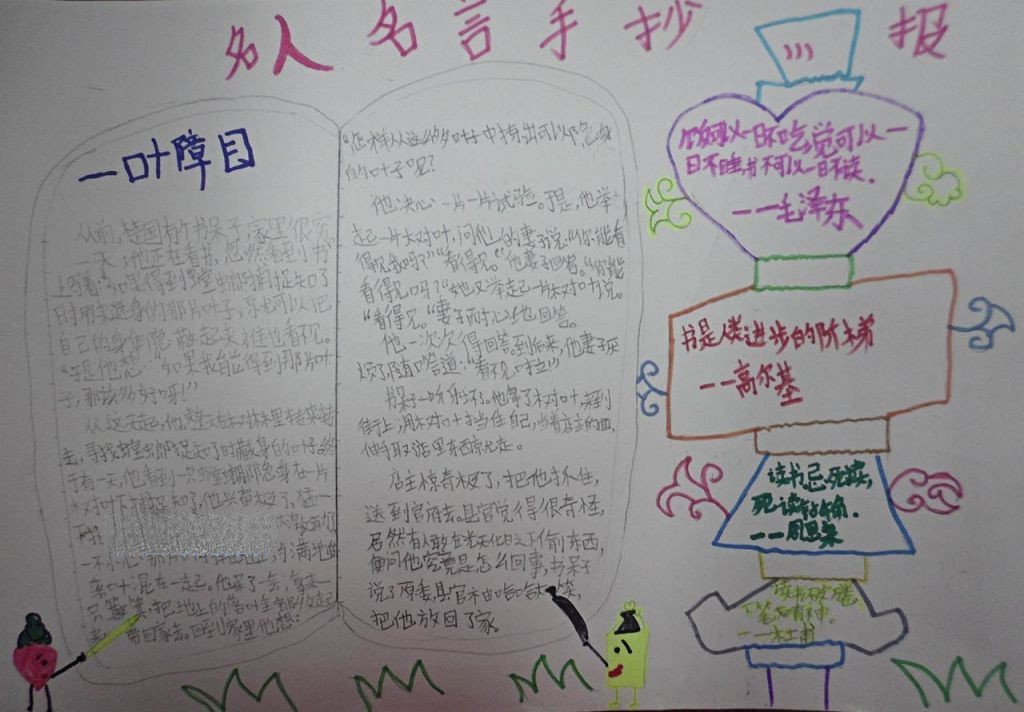 名人名言手抄报
一叶障目
从前,楚国有个书呆子,家里很穷
一天,他正在看书,忽然看到书
上写着:"如果得到螳螂捕捉知了
时用来遮身的那片叶子,就可以把
自己的身体隐蔽起来,谁也看不见。
"于是他想:"如果我能得到那片叶
子,那该多好呀!"
从这天起,他整天在树林里转来转
去,寻找螳螂捉知了时藏身的叶子,终
于有一天,他看到一只螳螂隐身在一片
树叶下捕捉知了,他兴奋极了,猛一
一不小心
叶混在一起。他呆了一会,拿来一
只簸箕,把地上的落叶全都
带回家去。回到家里他想:
"怎样从这么多叶子中挑出可以隐身
的叶子呢?
他决心一片一片试验。于是,他举
起一片树叶,问他的妻子说:"你能看
得见我吗?""看得见。"他妻子回答。"你能
看得见吗?"他又举起一片树叶说。
"看得见。"妻子耐心地回答。
他一次次得回答。到后来,他妻子厌
烦了随口答道:"看不见啦!"
呆子一听乐坏了。他拿了树叶,来到
街上,用树叶挡住自己,当着店主的面,
伸手取了店里东西就走。
店主惊奇极了,把他抓住,
送到官府去。县官觉得很奇怪,
居然有人敢在光天化日之下偷东西,
便问他究竟是怎么回事,书呆子
说了原委,县官不由哈哈大笑,
把他放回了家。
饭可以一日不吃觉可以一
日不睡书不可以一日不读.
——毛泽东
书是人类进步的阶梯
——高尔基
读书忌死读,
死读
——周恩来
读书破万卷,
下笔如有神.
——杜甫